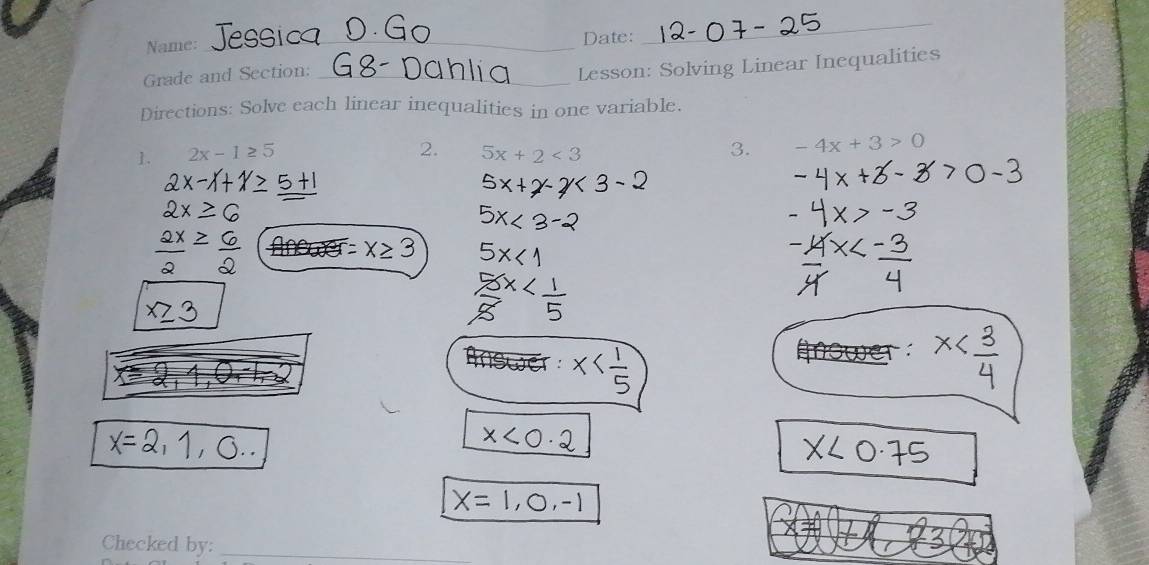 Name: Jessica D. Go
Date: 12-07-25
Grade and Section: G8-Dahlia
Lesson: Solving Linear Inequalities
Directions: Solve each linear inequalities in one variable.
1. 2x - 1 ≥ 5
2x-1+1 ≥ 5+1
2x ≥ 6
2x/2 ≥ 6/2
Answer = x ≥ 3
x ≥ 3
x=2,1,0..
2. 5x + 2 < 3
5x+2-2 < 3-2
5x < 3-2
5x < 1
5x/5 < 1/5
Answer: x < 1/5
x < 0.2
x = 1,0,-1
3. - 4x + 3 > 0
-4x+3-3 > 0-3
-4x > -3
-4x/4 < -3/4
Answer: x < 3/4
x < 0.75
Checked by: